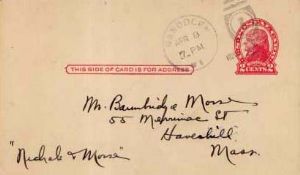 APR 8
PM
THIS SIDE OF CARD IS FOR ADDRESS
2 CENTS 2
Mr. Bainbridge Morse
55 Merrimac St
Haverhill
Mass.
"Nichols & Morse"